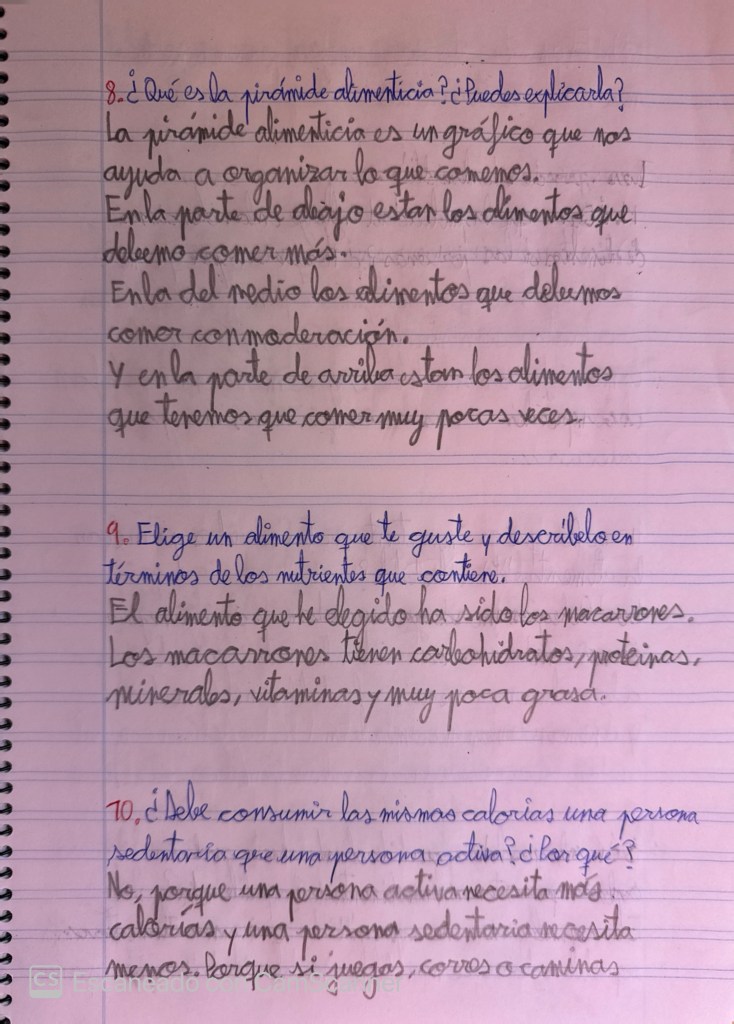 8. ¿Qué es la pirámide alimenticia? ¿Puedes explicarla?
La pirámide alimenticia es un gráfico que nos
ayuda a organizar lo que comemos.
En la parte de abajo estan los alimentos que
debemo comer más.
En la del medio los alimentos que debemos
comer con moderación.
Y en la parte de arriba estan los alimentos
que tenemos que comer muy pocas veces.
9. Elige un alimento que te guste y descríbelo en
términos de los nutrientes que contiene.
El alimento que he elegido ha sido los macarrones.
Los macarrones tienen carbohidratos, proteinas,
minerales, vitaminas y muy poca grasa.
10. ¿Debe consumir las mismas calorías una persona
sedentaria que una persona activa? ¿Por qué?
No, porque una persona activa necesita más
calorías y una persona sedentaria necesita
menos. Porque si juegas, corres o caminas
CS Escaneado con CamScanner